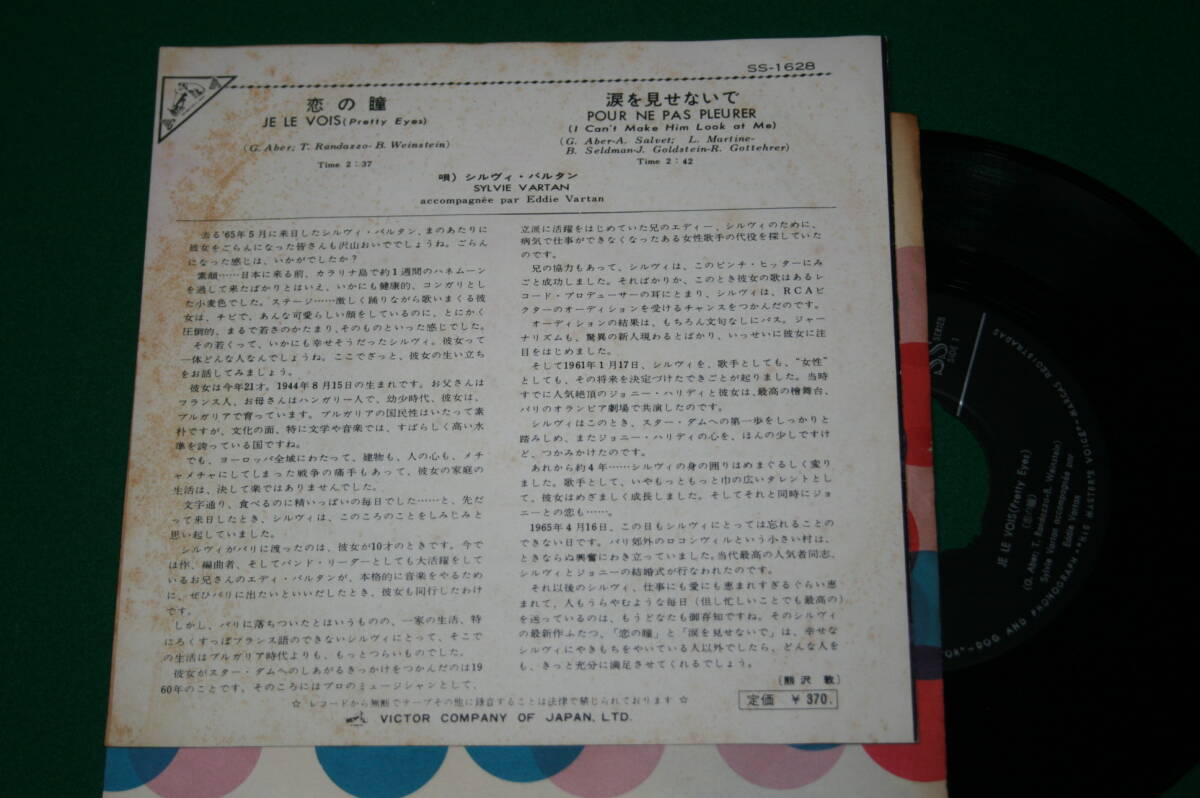 SS-1628
恋の瞳
JE LE VOIS (Pretty Eyes)
(G. Aber; T. Randazzo-B. Weinstein)
Time 2:37
涙を見せないで
POUR NE PAS PLEURER
(I Can't Make Him Look at Me)
(G. Aber-A. Salvet; L. Martine-
B. Seldman-J. Goldstein-R. Gottehrer)
Time 2:42
唄) シルヴィ・バルタン
SYLVIE VARTAN
accompagnée par Eddie Vartan
去る'65年5月に来日したシルヴィ・バルタン、まのあたりに
彼女をごらんになった皆さんも沢山おいででしょうね。ごらん
になった感じは、いかがでしたか?
素顔……日本に来る前、カラリナ島で約1週間のハネムーン
を過して来たばかりとはいえ、いかにも健康的、コンガリとし
た小麦色でした。ステージ……激しく踊りながら歌いまくる彼
女は、チビで、あんな可愛らしい顔をしているのに、とにかく
圧倒的、まるで若さのかたまり、そのものといった感じでした。
その若くって、いかにも幸せそうだったシルヴィ。彼女って
一体どんな人なんでしょうね。ここでざっと、彼女の生い立ち
をお話してみましょう。
彼女は今年21才。1944年8月15日の生まれです。お父さんは
フランス人、お母さんはハンガリー人で、幼少時代、彼女は、
ブルガリアで育っています。ブルガリアの国民性はいたって素
朴ですが、文化の面、特に文学や音楽では、すばらしく高い水
準を誇っている国ですね。
でも、ヨーロッパ全域にわたって、建物も、人の心も、メチ
ャメチャにしてしまった戦争の痛手もあって、彼女の家庭の
生活は、決して楽ではありませんでした。
文字通り、食べるのに精いっぱいの毎日でした……と、先だ
って来日したとき、シルヴィは、このころのことをしみじみと
思い起していました。
シルヴィがパリに渡ったのは、彼女が10才のときです。今で
は作、編曲者、そしてバンド・リーダーとしても大活躍をして
いるお兄さんのエディ・バルタンが、本格的に音楽をやるため
に、ぜひパリに出たいといいだしたとき、彼女も同行したわけ
です。
しかし、パリに落ちついたとはいうものの、一家の生活、特
にろくすっぽフランス語のできないシルヴィにとって、そこで
の生活はブルガリア時代よりも、もっとつらいものでした。
彼女がスター・ダムへのしあがるきっかけをつかんだのは19
60年のことです。そのころにはプロのミュージシャンとして、
立派に活躍をはじめていた兄のエディー、シルヴィのために、
病気で仕事ができなくなったある女性歌手の代役を探していた
のです。
兄の協力もあって、シルヴィは、このピンチ・ヒッターにみ
ごと成功しました。そればかりか、このとき彼女の歌はあるレ
コード・プロデューサーの耳にとまり、シルヴィは、RCAビ
クターのオーディションを受けるチャンスをつかんだのです。
オーディションの結果は、もちろん文句なしにパス。ジャー
ナリズムも、驚異の新人現わるとばかり、いっせいに彼女に注
目をはじめました。
そして1961年1月17日、シルヴィを、歌手としても、“女性”
としても、その将来を決定づけたできごとが起りました。当時
すでに人気絶頂のジョニー・ハリディと彼女は、最高の檜舞台、
パリのオランピア劇場で共演したのです。
シルヴィはこのとき、スター・ダムへの第一歩をしっかりと
踏みしめ、またジョニー・ハリディの心を、ほんの少しですけ
ど、つかみかけたのです。
あれから約4年……シルヴィの身の囲りはめまぐるしく変り
ました。歌手として、いやもっともっと巾の広いタレントとし
て、彼女はめざましく成長しました。そしてそれと同時にジョ
ニーとの恋も……。
1965年4月16日、この日もシルヴィにとっては忘れることの
できない日です。パリ郊外のロコンヴィルという小さい村は、
ときならぬ興奮にわき立っていました。当代最高の人気者同志、
シルヴィとジョニーの結婚式が行なわれたのです。
それ以後のシルヴィ、仕事にも愛にも恵まれすぎるぐらい恵
まれて、人もうらやむような毎日(但し忙しいことでも最高の)
を送っているのは、もうどなたも御存知ですね。そのシルヴィ
の最新作ふたつ、「恋の瞳」と「涙を見せないで」は、幸せな
シルヴィにやきもちをやいている人以外でしたら、どんな人を
も、きっと充分に満足させてくれるでしょう。
(熊沢 敦)
☆ レコードから無断でテープその他に録音することは法律で禁じられております ☆
定価 ¥370.
VICTOR COMPANY OF JAPAN, LTD.
SS SERIES
SIDE 1
JE LE VOIS (Pretty Eyes)
(恋の瞳)
(G. Aber; T. Randazzo-B. Weinstein)
Sylvie Vartan accompagnée par
Eddie Vartan
"HIS MASTER'S VOICE" MARCAS REGISTRADAS
DOG AND PHONOGRAPH